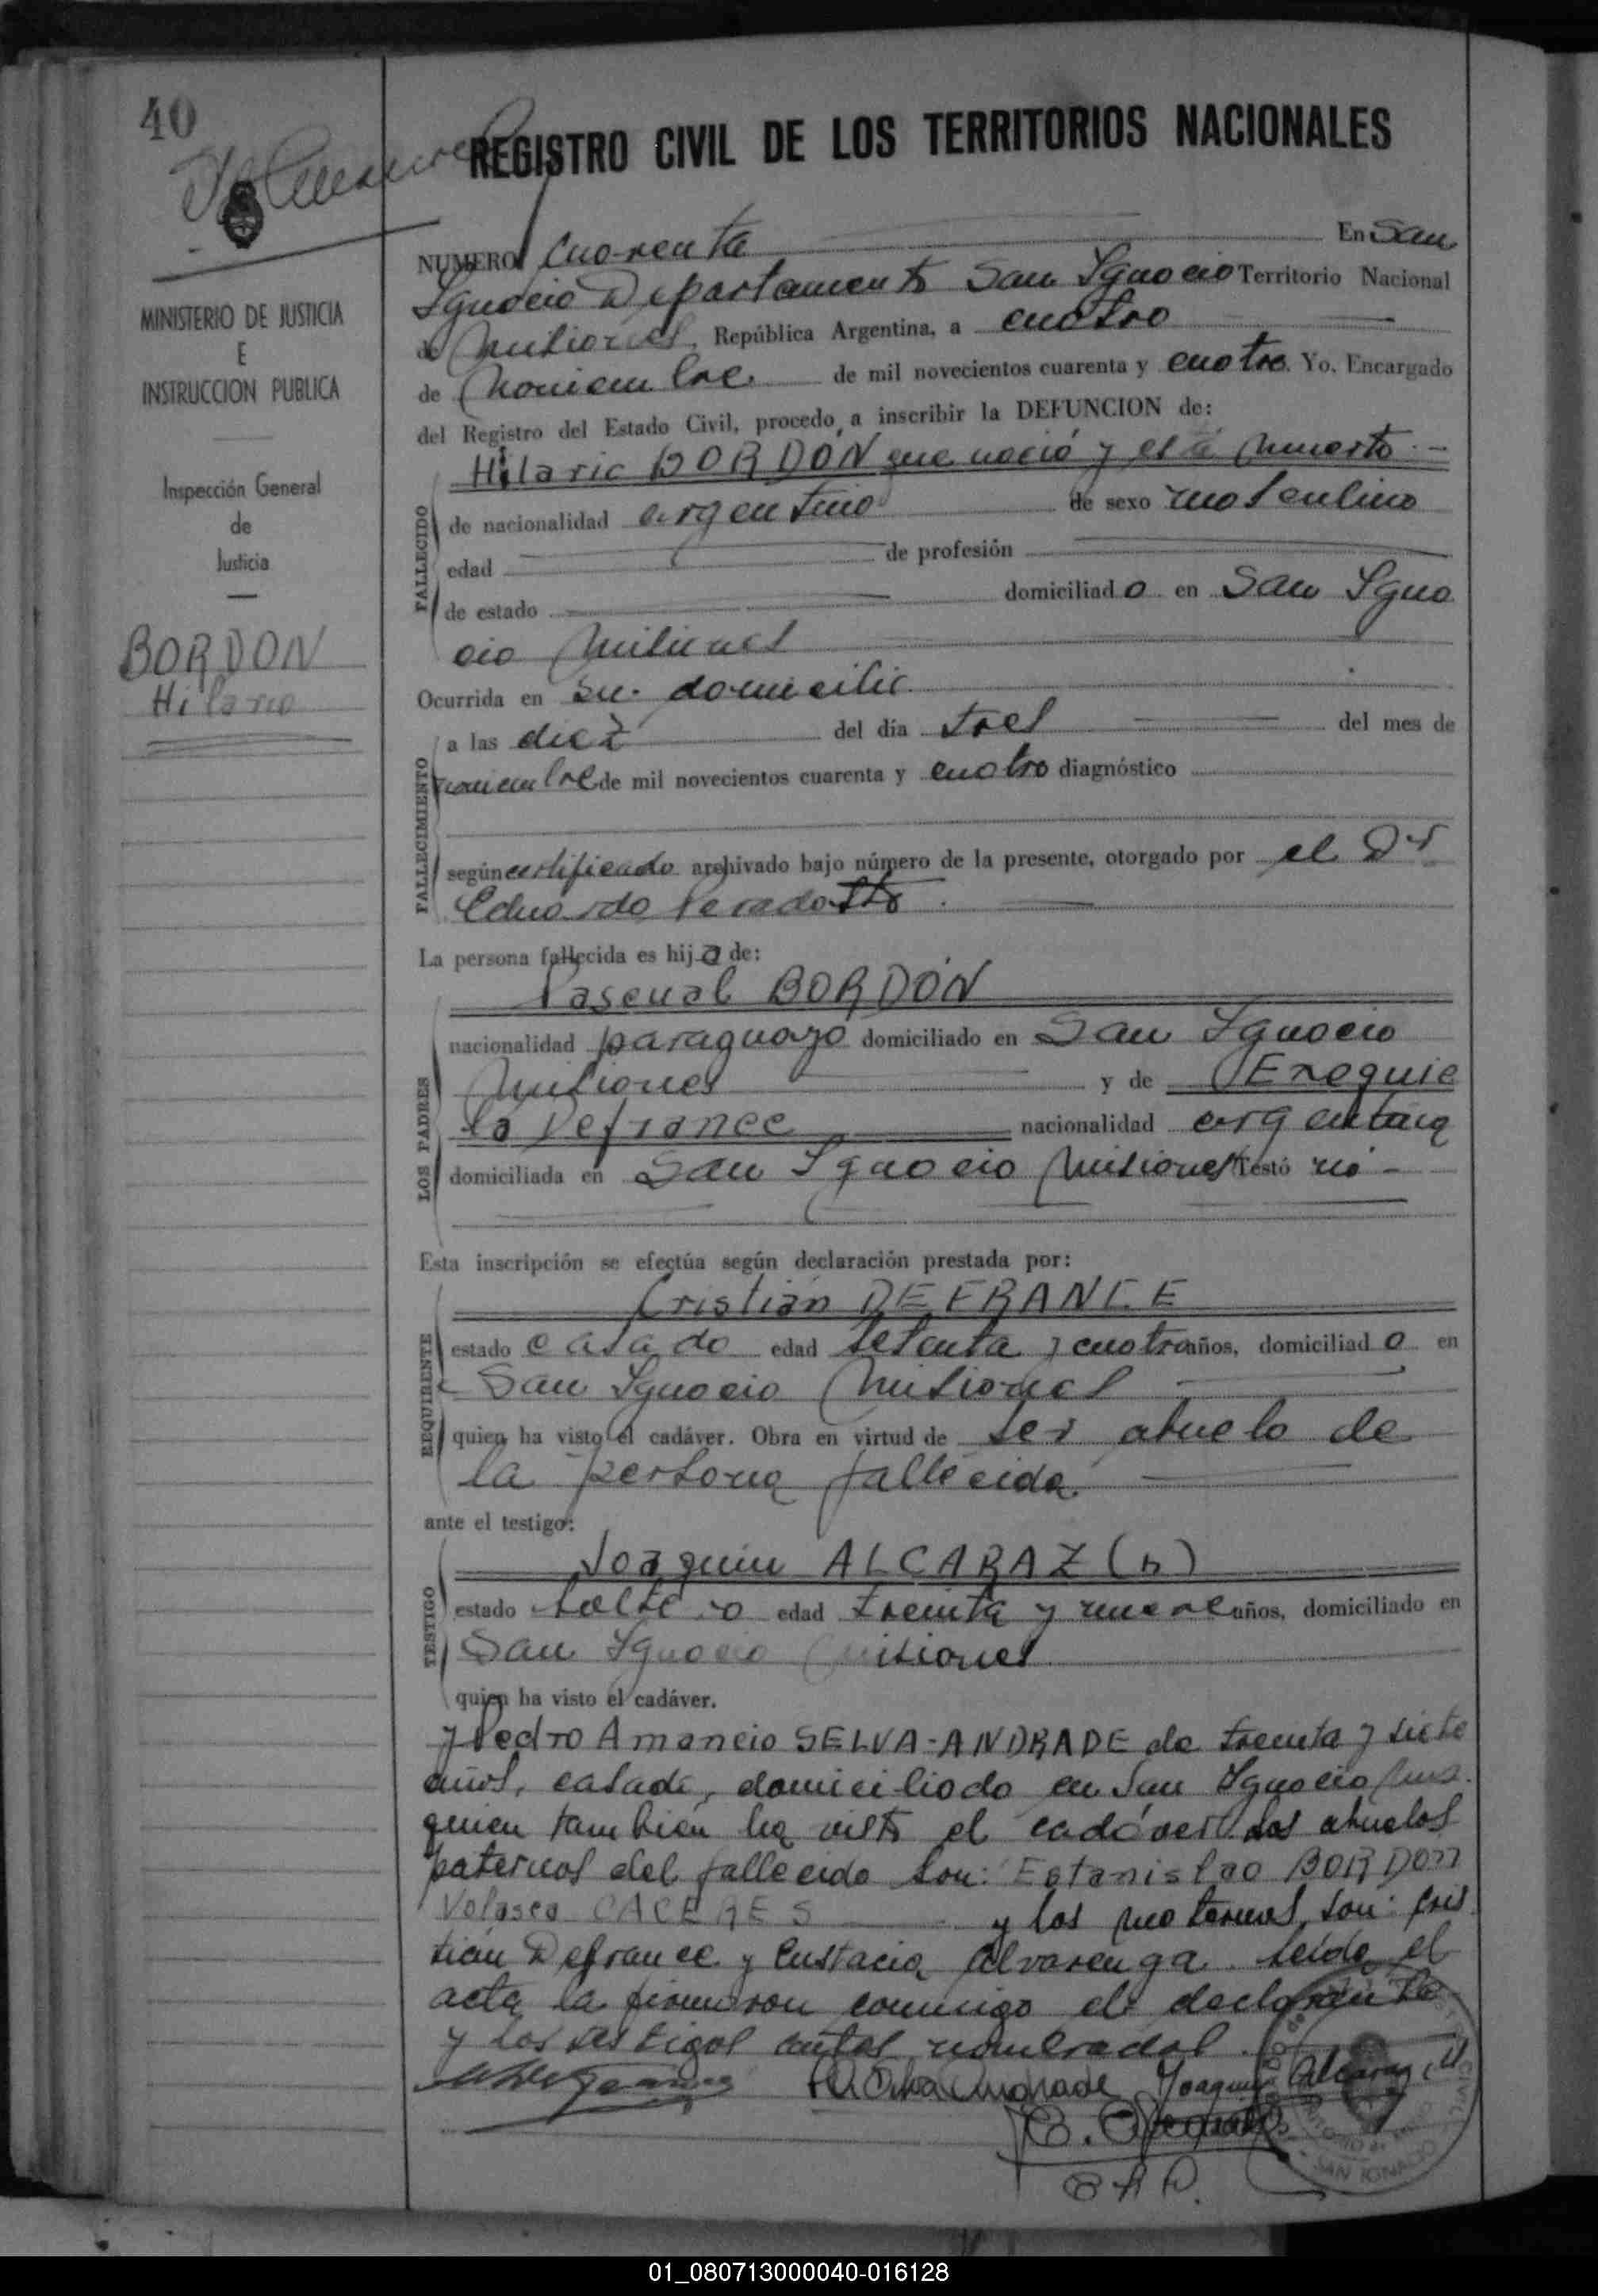 40
REGISTRO CIVIL DE LOS TERRITORIOS NACIONALES
MINISTERIO DE JUSTICIA
E
INSTRUCCION PUBLICA
Inspección General
de
Justicia
BORDON
Hilario
NUMERO Cuarenta En San
Ignacio Departamento San Ignacio Territorio Nacional
de Misiones, República Argentina, a cuatro
de Noviembre de mil novecientos cuarenta y cuatro. Yo, Encargado
del Registro del Estado Civil, procedo a inscribir la DEFUNCION de:
Hilario BORDÓN que nació y está muerto
FALLECIDO
de nacionalidad argentino de sexo masculino
edad de profesión
de estado domiciliado en San Igna
cio Misiones
Ocurrida en su domicilio
FALLECIMIENTO
a las diez del día tres del mes de
noviembre de mil novecientos cuarenta y cuatro diagnóstico
según certificado archivado bajo número de la presente, otorgado por el Dr
Eduardo
La persona fallecida es hija de:
LOS PADRES
Pascual BORDÓN
nacionalidad paraguayo domiciliado en San Ignacio
Misiones y de Exequie
la Defrance nacionalidad argentina
domiciliada en San Ignacio Misiones Testó no
Esta inscripción se efectúa según declaración prestada por:
REQUIRENTE
Cristián DEFRANCE
estado casado edad setenta y cuatro años, domiciliado en
San Ignacio Misiones
quien ha visto el cadáver. Obra en virtud de ser abuelo de
la persona fallecida
ante el testigo:
TESTIGO
Joaquin ALCARAZ (h)
estado soltero edad treinta y nueve años, domiciliado en
San Ignacio Misiones
quien ha visto el cadáver.
y Pedro Amancio SELVA-ANDRADE de treinta y siete
años, casado, domiciliado en San Ignacio Mns.
quien también ha visto el cadáver. Los abuelos
paternos del fallecido son: Estanislao BORDON
Velasca CACERES y los maternos, son: Cris
tián Defrance y Eustacia Alvarenga. Leída el
acta la firmaron conmigo el declarante
y los testigos antes nombrados.
Andrade Joaquin Alcaraz (h)
SAN IGNACIO
01_080713000040-016128